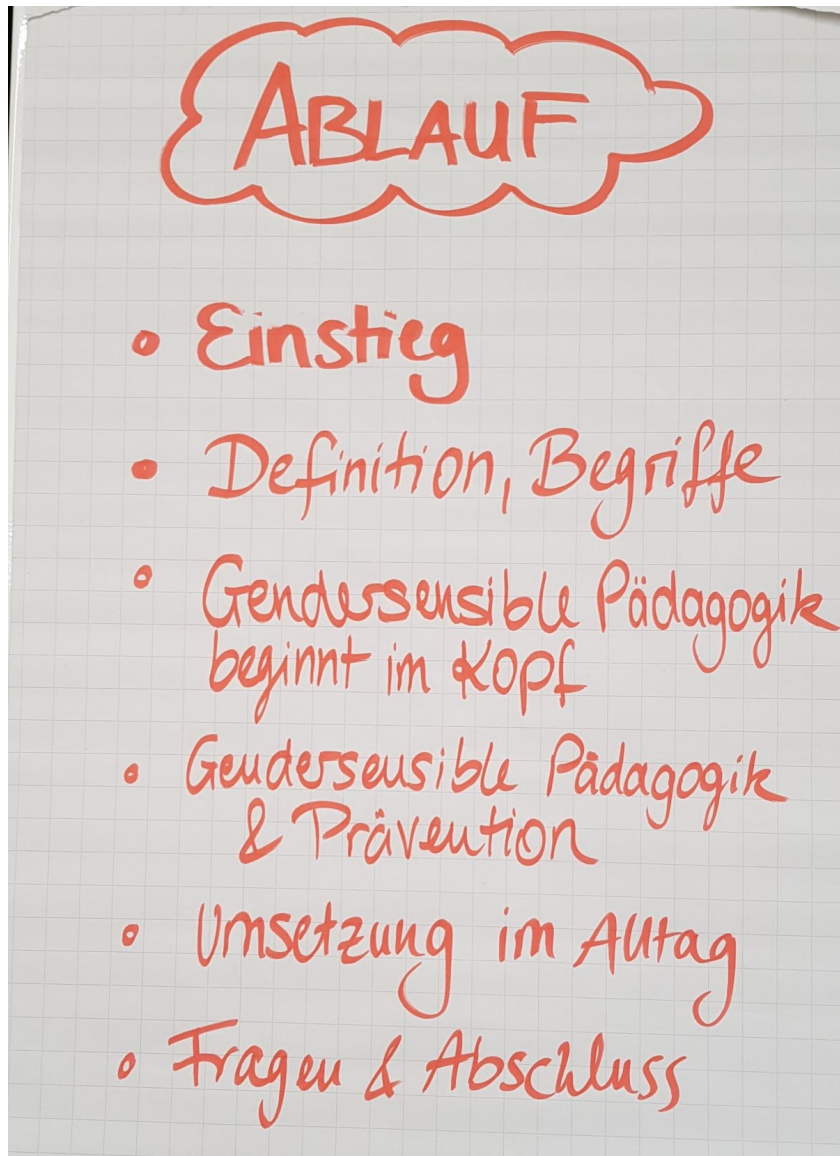 ABLAUF
• Einstieg
• Definition, Begriffe
• Gendersensible Pädagogik
beginnt im Kopf
• Gendersensible Pädagogik
& Prävention
• Umsetzung im Alltag
• Fragen & Abschluss